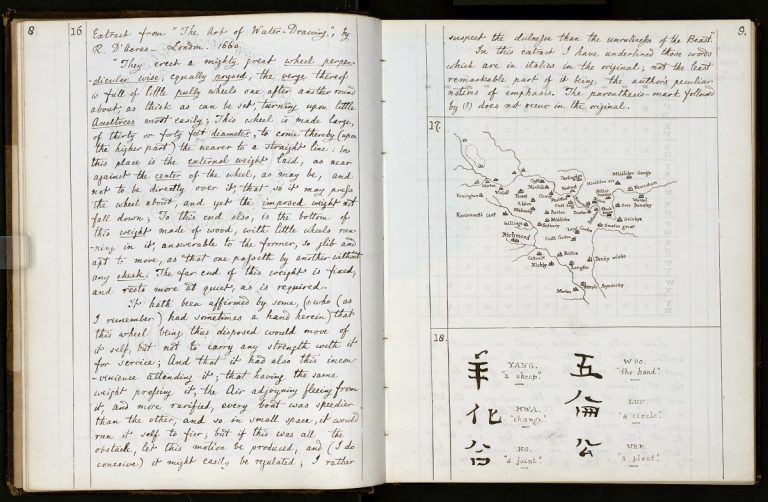 8
16
Extract from "The Art of Water-Drawing", by
R. D'Acres_ London_ 1660.
"They erect a mighty great wheel perpen-
-dicular wise, equally poysed, the verge thereof
is full of little pully wheels one after another round
about, as thick as can be set, turning upon little
Axeltrees most easily; This wheel is made large,
of thirty or forty foot diameter, to come thereby (upon
the higher part) the nearer to a straight line: in
this place is the external weight laid, as near
against the center of the wheel, as may be, and
not to be directly over it, that so it may press
the wheel about, and yet the imposed weight not
fall down; To this end also, is the bottom of
this weight made of wood, with little wheels run-
-ning in it, answerable to the former, so glib and
apt to move, as that one passeth by another without
any check. The far end of this weight is fixed,
and rests more at quiet, as is required.
It hath been affirmed by some, (who (as
I remember) had sometimes a hand herein) that
this wheel being thus disposed would move of
it self, but not to carry any strength with it
for service; And that it had also this incon
-vinience attending it; that having the same
weight pressing it, the Air adjoyning fleeing from
it, and more rarified, every bout was speedier
than the other, and so in small space, it would
run it self to fier; but if this was all the
obstacle, let this motion be produced, and (I do
conceive) it might easily be regulated; I rather
9.
suspect the dulness than the unruliness of the Beast."
In this extract I have underlined those words
which are in italics in the original; not the least
remarkable part of it being the author's peculiar
notions of emphasis. The parenthesis mark followed
by (?) does not occur in the original.
17.
Darlington
Middleton George
Ravenworth cast
Over Dinsdale
Gilling
Richmond
Middleton
Smeaton great
South Cowton
Danby wiske
Kirkby
Langton
18.
羊
YANG.
"a sheep".
五
WOO.
"the hand".
化
HWA.
"change".
侖
LUN.
"a circle".
合
HO.
"a joint".
公
"a plant".